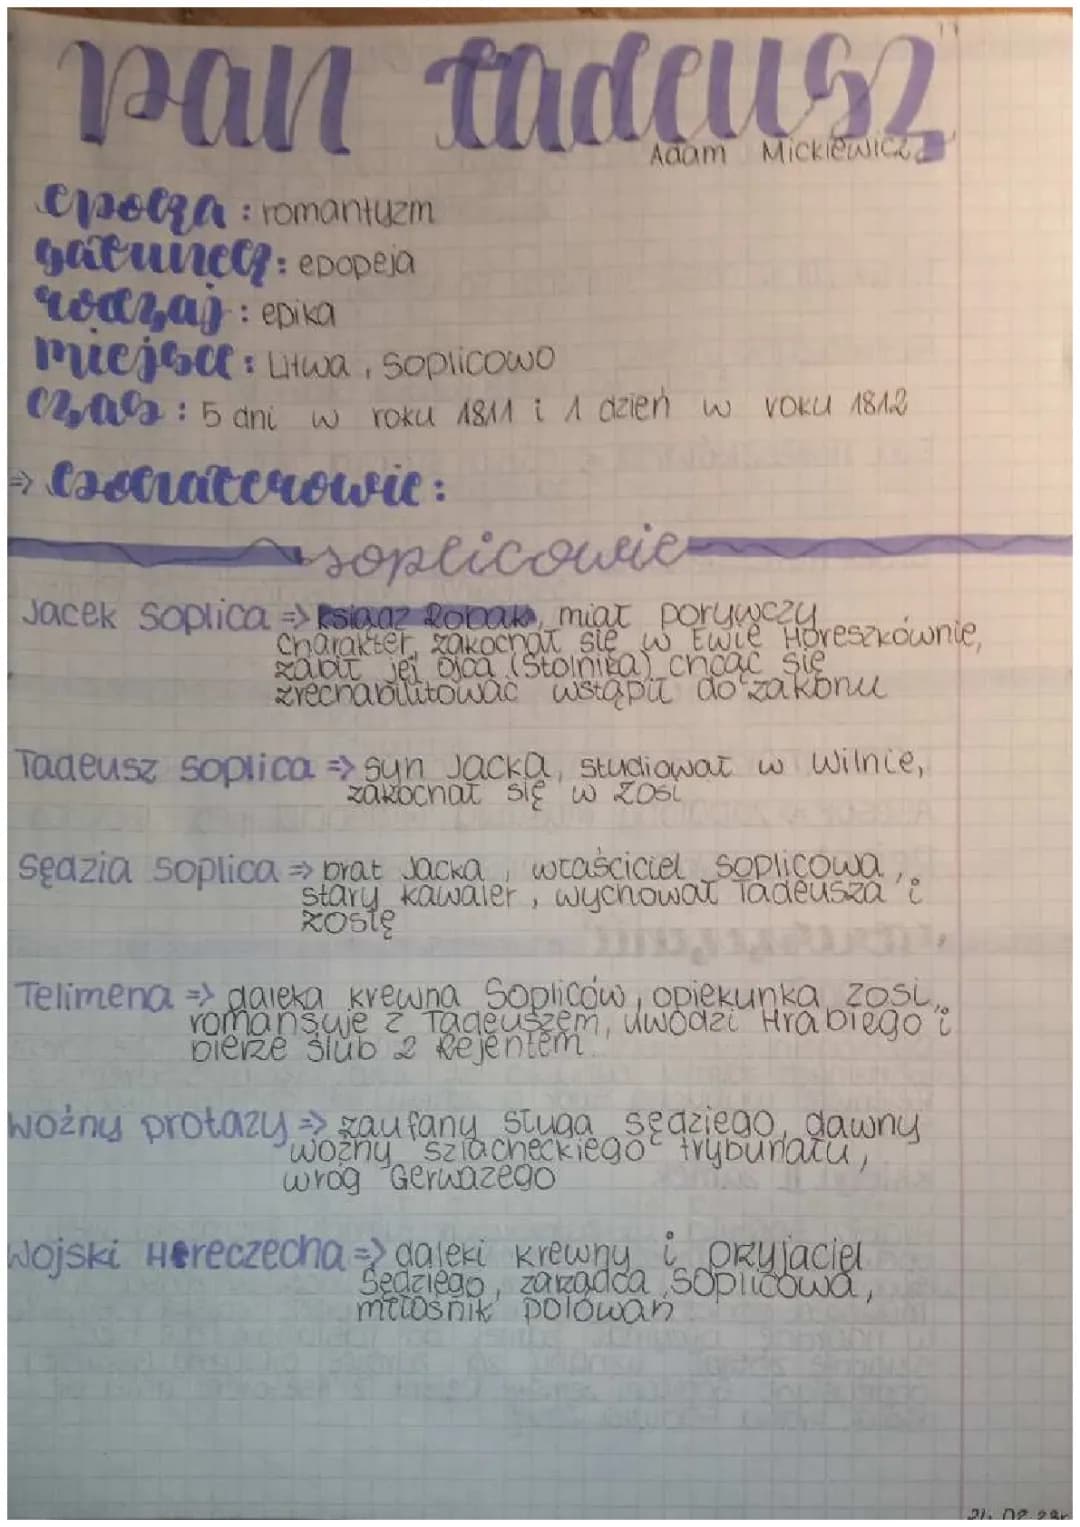 pan tadeusz
Adam Mickiewicz
epoka: romantyzm
gatunek: epopeja
rodzaj: epika
miejsce: Litwa, Soplicowo
czas: 5 dni w roku 1811 i 1 dzień w roku 1812
⇒ bohaterowie:
soplicowie
Jacek Soplica ⇒ ksiądz Robak, miał porywczy
charakter, zakochał się w Ewie Horeszkównie,
zabił jej ojca (Stolnika) chcąc się
zrechabilitować wstąpił do zakonu
Tadeusz Soplica ⇒ syn Jacka, studiował w Wilnie,
zakochał się w Zosi
Sędzia Soplica ⇒ brat Jacka, właściciel Soplicowa,
stary kawaler, wychował Tadeusza i
Zosię
Telimena ⇒ daleka krewna Sopliców, opiekunka Zosi,
romansuje z Tadeuszem, uwodzi Hrabiego i
bierze ślub z Rejentem
Woźny protazy ⇒ zaufany sługa sędziego, dawny
woźny szlacheckiego trybunału,
wróg Gerwazego
Wojski Hereczecha ⇒ daleki krewny i przyjaciel
Sędziego, zarządca Soplicowa,
miłośnik polowań